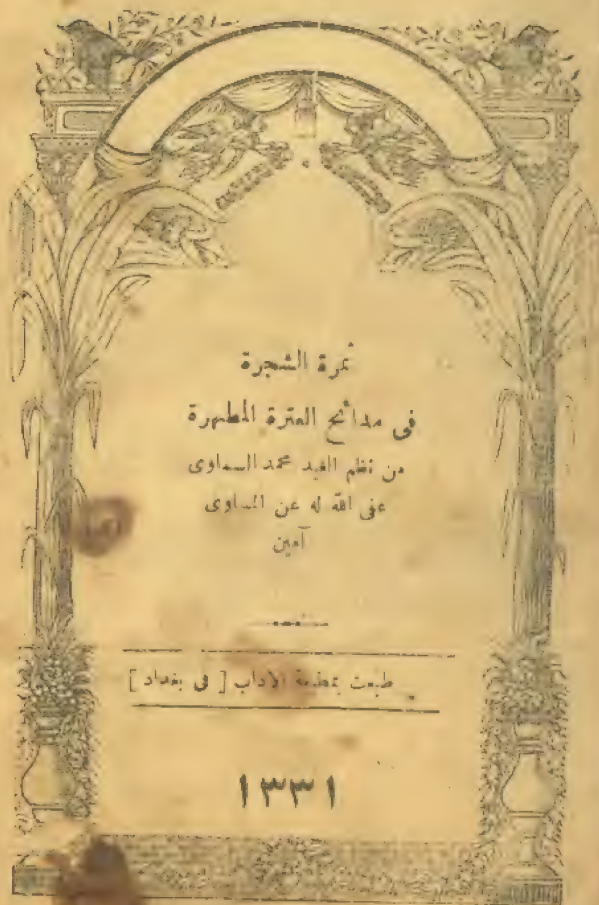 ثمرة الشجرة
فى مدائح العترة المطهرة
من نظم العبد محمد السماوى
عفى الله له عن المساوى
آمين
طبعت بمطبعة الاداب [ فى بغداد ]
١٣٣١